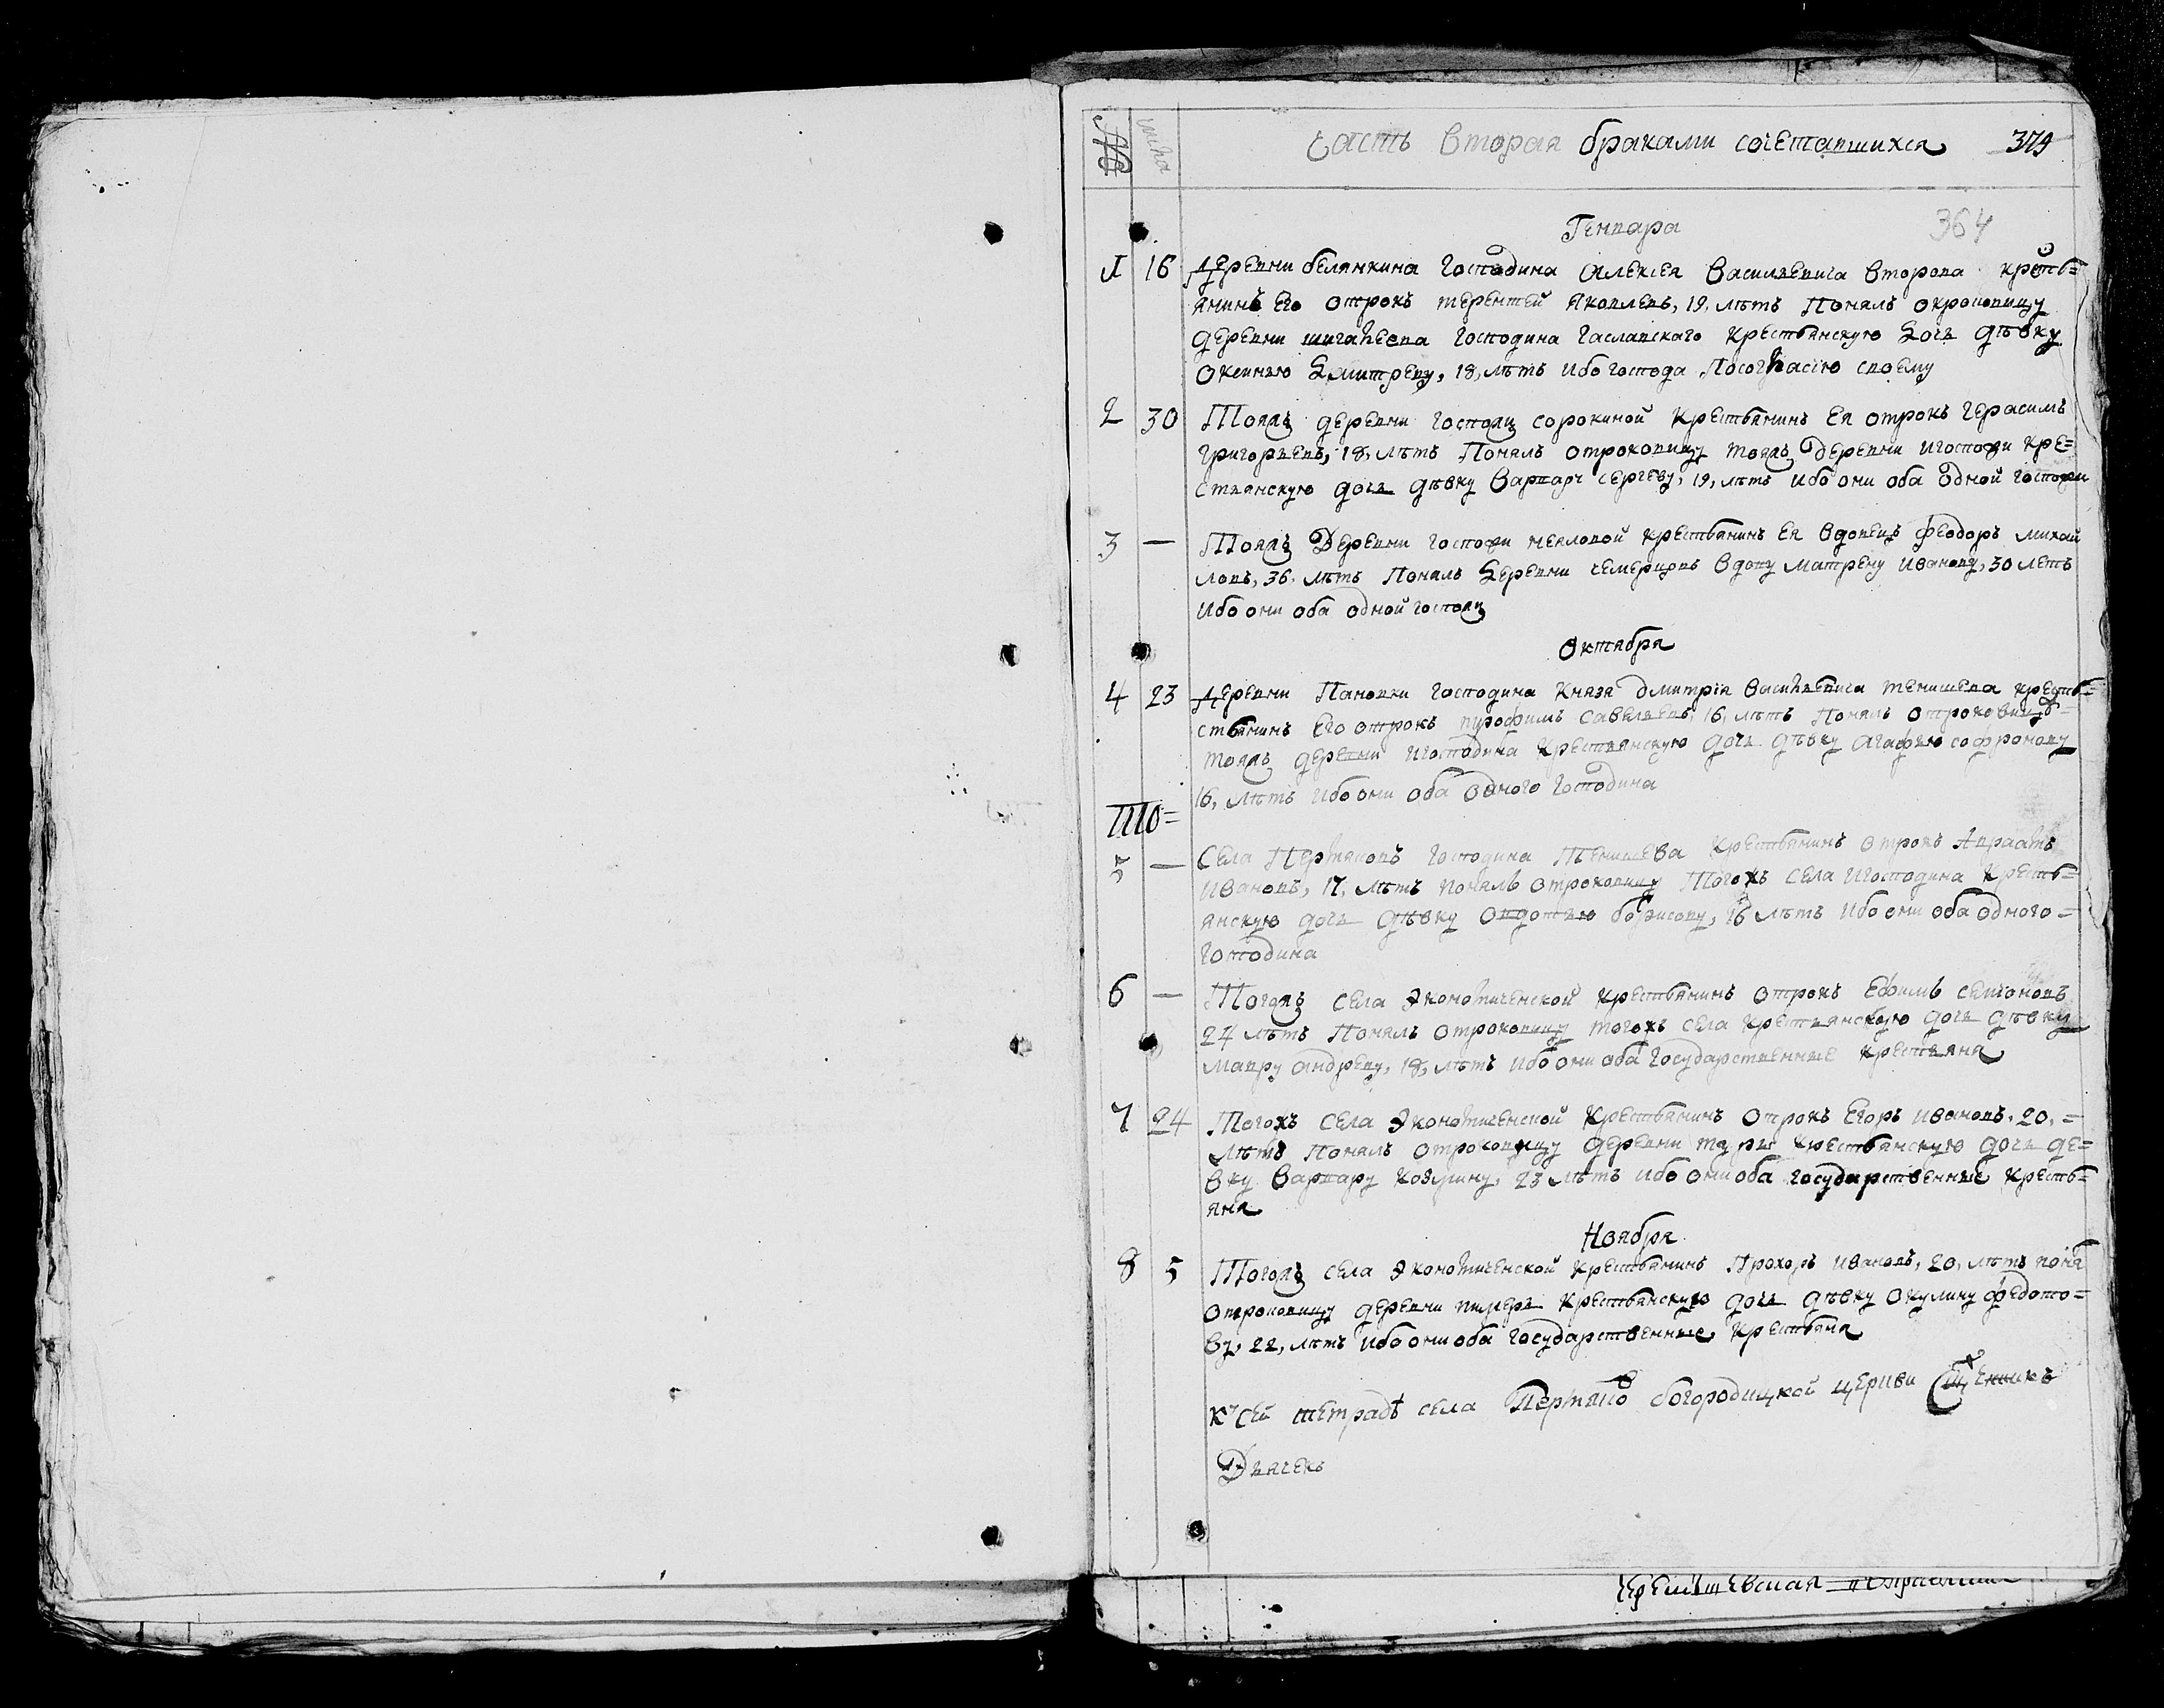 № числа Часть вторая браками сочетавшихся 379
Генваря 364
1 16 деревни белянкина господина Алексея Василевича второва кресть=
янинъ Его отрокъ терентей Яковлевъ, 19, лѣтъ Понялъ
деревни господина крестьянскую дочь дѣвку
Оксинью дмитреву, 18, лѣтъ ибо господа Посогласию своему
2 30 Тояжъ деревни госпожи сорокиной крестьянинъ Ея отрокъ герасимъ
григорьевъ, 18, лѣтъ Понялъ отроковицу тояжъ деревни игоспожи кре=
стьянскую дочь дѣвку Варвару сергеву, 19, лѣтъ ибо они оба одной госпожи
3 — Тояжъ Деревни госпожи крестьянинъ Ея вдовецъ феодоръ михай
ловъ, 36, лѣтъ Понялъ деревни вдову матрену иванову, 30 летъ
ибо они оба одной госпожи
Октября
4 23 деревни Пановки господина Князя дмитрія Василевича тенишева кресть=
стьянинъ Его отрокъ савельевъ, 16, лѣтъ Понялъ отроковицу=
тояжъ деревни игосподина крестьянскую дочь дѣвку агафью софронову
16, лѣтъ ибо они оба одного господина
5 — Села господина Тенишева крестьянинъ отрокъ
ивановъ, 17, лѣтъ понялъ отроковицу Тогожъ села игосподина кресть=
янскую дочь дѣвку овдотью борисову, 16 лѣтъ ибо они оба одного=
господина
6 — Тогожъ села Экономической крестьянинъ отрокъ Ефимъ семионовъ
24 лѣтъ Понялъ отроковицу тогожъ села крестьянскую дочь дѣвку
мавру андреву, 18, лѣтъ ибо они оба государственные крестьяна
7 24 Тогожъ села Экономической крестьянинъ отрокъ Егоръ ивановъ, 20,=
лѣтъ Понялъ отроковицу деревни крестьянскую дочь де=
вку Варвару козмину, 23 лѣтъ ибо они оба государственные кресть=
яна
Ноября
8 5 Тогожъ села Экономической крестьянинъ Прохоръ ивановъ, 20, лѣтъ поня
отроковицу деревни крестьянскую дочь дѣвку окулину федото=
ву, 22, лѣтъ ибо они оба государственные крестьяна
Къ сей тетрадѣ села богородицкой церкви
Дьячекъ